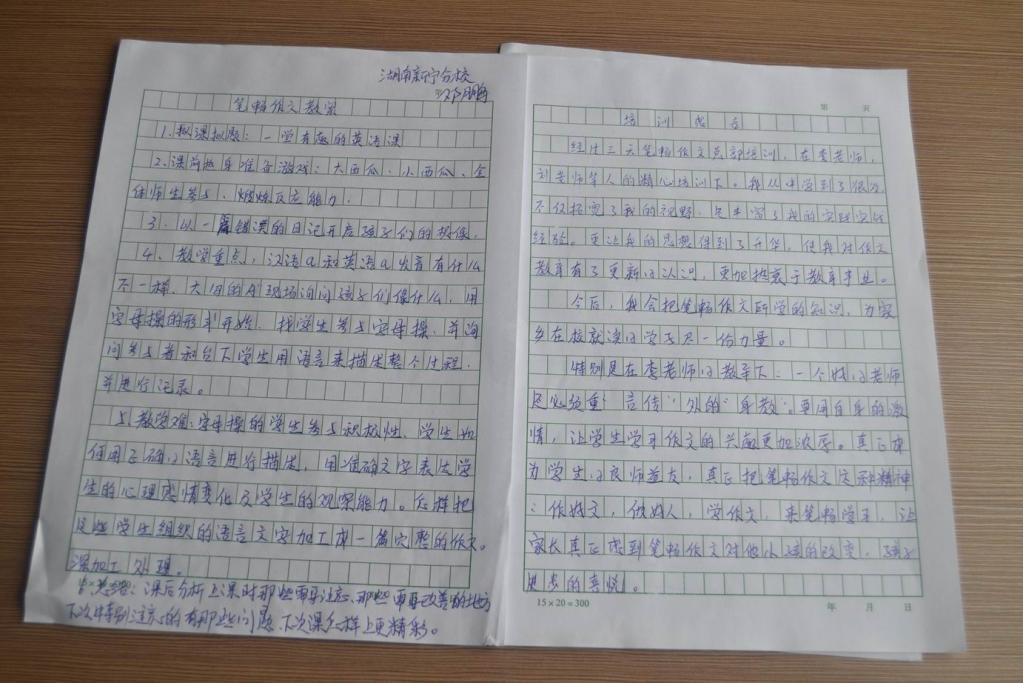 湖南新宁分校
邓鹏
笔畅作文教案
1、拟课拟题：一堂有趣的英语课
2、课前热身准备游戏：大西瓜、小西瓜、全
体师生参与，锻炼反应能力。
3、以一篇错误的日记开启孩子们的想像。
4、教学重点，汉语a和英语a发音有什么
不一样、大的A现场询问孩子们像什么，用
字母操的形式开始，找学生参与字母操、并询
问参与者和台下学生用语言来描述整个过程，
并进行记录。
5、教学难：字母操的学生参与积极性、学生如
何用正确的语言进行描述，用准确文字表达学
生的心理感情变化及学生的观察能力。怎样把
这些学生组织的语言文字加工成一篇完整的作文。
深加工处理。
课后分析上课时那些需要注意、那些需要改善的地方
下次特别注意的有那些问题、下次课怎样上更精彩。
第 页
培训感言
经过三天笔畅作文总部培训，在李老师，
刘老师等人的精心培训下。我从中学到了很多，
不仅拓宽了我的视野，也丰富了我的实践实
经验。更让我的思想得到了升华，使我对作文
教育有了更新的认识，更加热衷于教育事业。
今后，我会把笔畅作文所学的知识，为家
乡在校就读的学子尽一份力量。
特别是在李老师的教导下：一个好的老师
还必须重“言传”外的“身教”。要用自身的激
情，让学生学习作文的兴趣更加浓厚。真正成
为学生的良师益友，真正把笔畅作文精神
：作好文，做好人，学作文，来笔畅学习，让
家长真正感到笔畅作文对他小孩的改变，孩子
进步的喜悦。
15×20=300
年 月 日